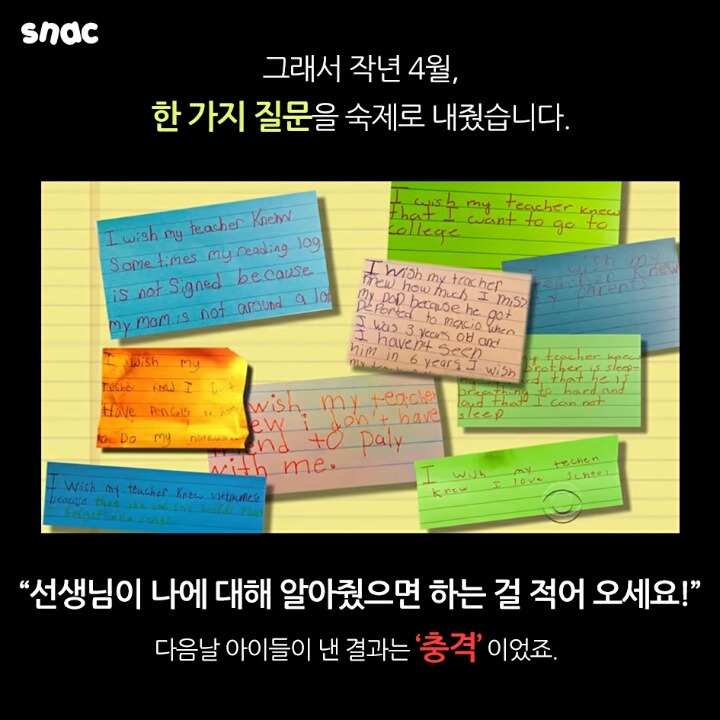 snac
그래서 작년 4월,
한 가지 질문을 숙제로 내줬습니다.
I wish my teacher Knew
Sometimes my reading log
is not Signed because
my mom is not around a
I wish my teacher knew
that I want to go to
college
I wish my teacher
knew how much I miss
my DAD because he got
DePorteD to mexcio when
I was 3 years old and
I haven't seen
him in 6 years I wish
I wish my
teacher knew
my parents
I wish my
knew I
Have Pencils
Do my
wish my teacher
i don't have
to paly
with me.
teacher knew
brother is
that he is
to hard and
that I can not
sleep
I Wish my teacher Knew
because
I wish my
knew I love School
“선생님이 나에 대해 알아줬으면 하는 걸 적어 오세요!”
다음날 아이들이 낸 결과는 ‘충격’ 이었죠.